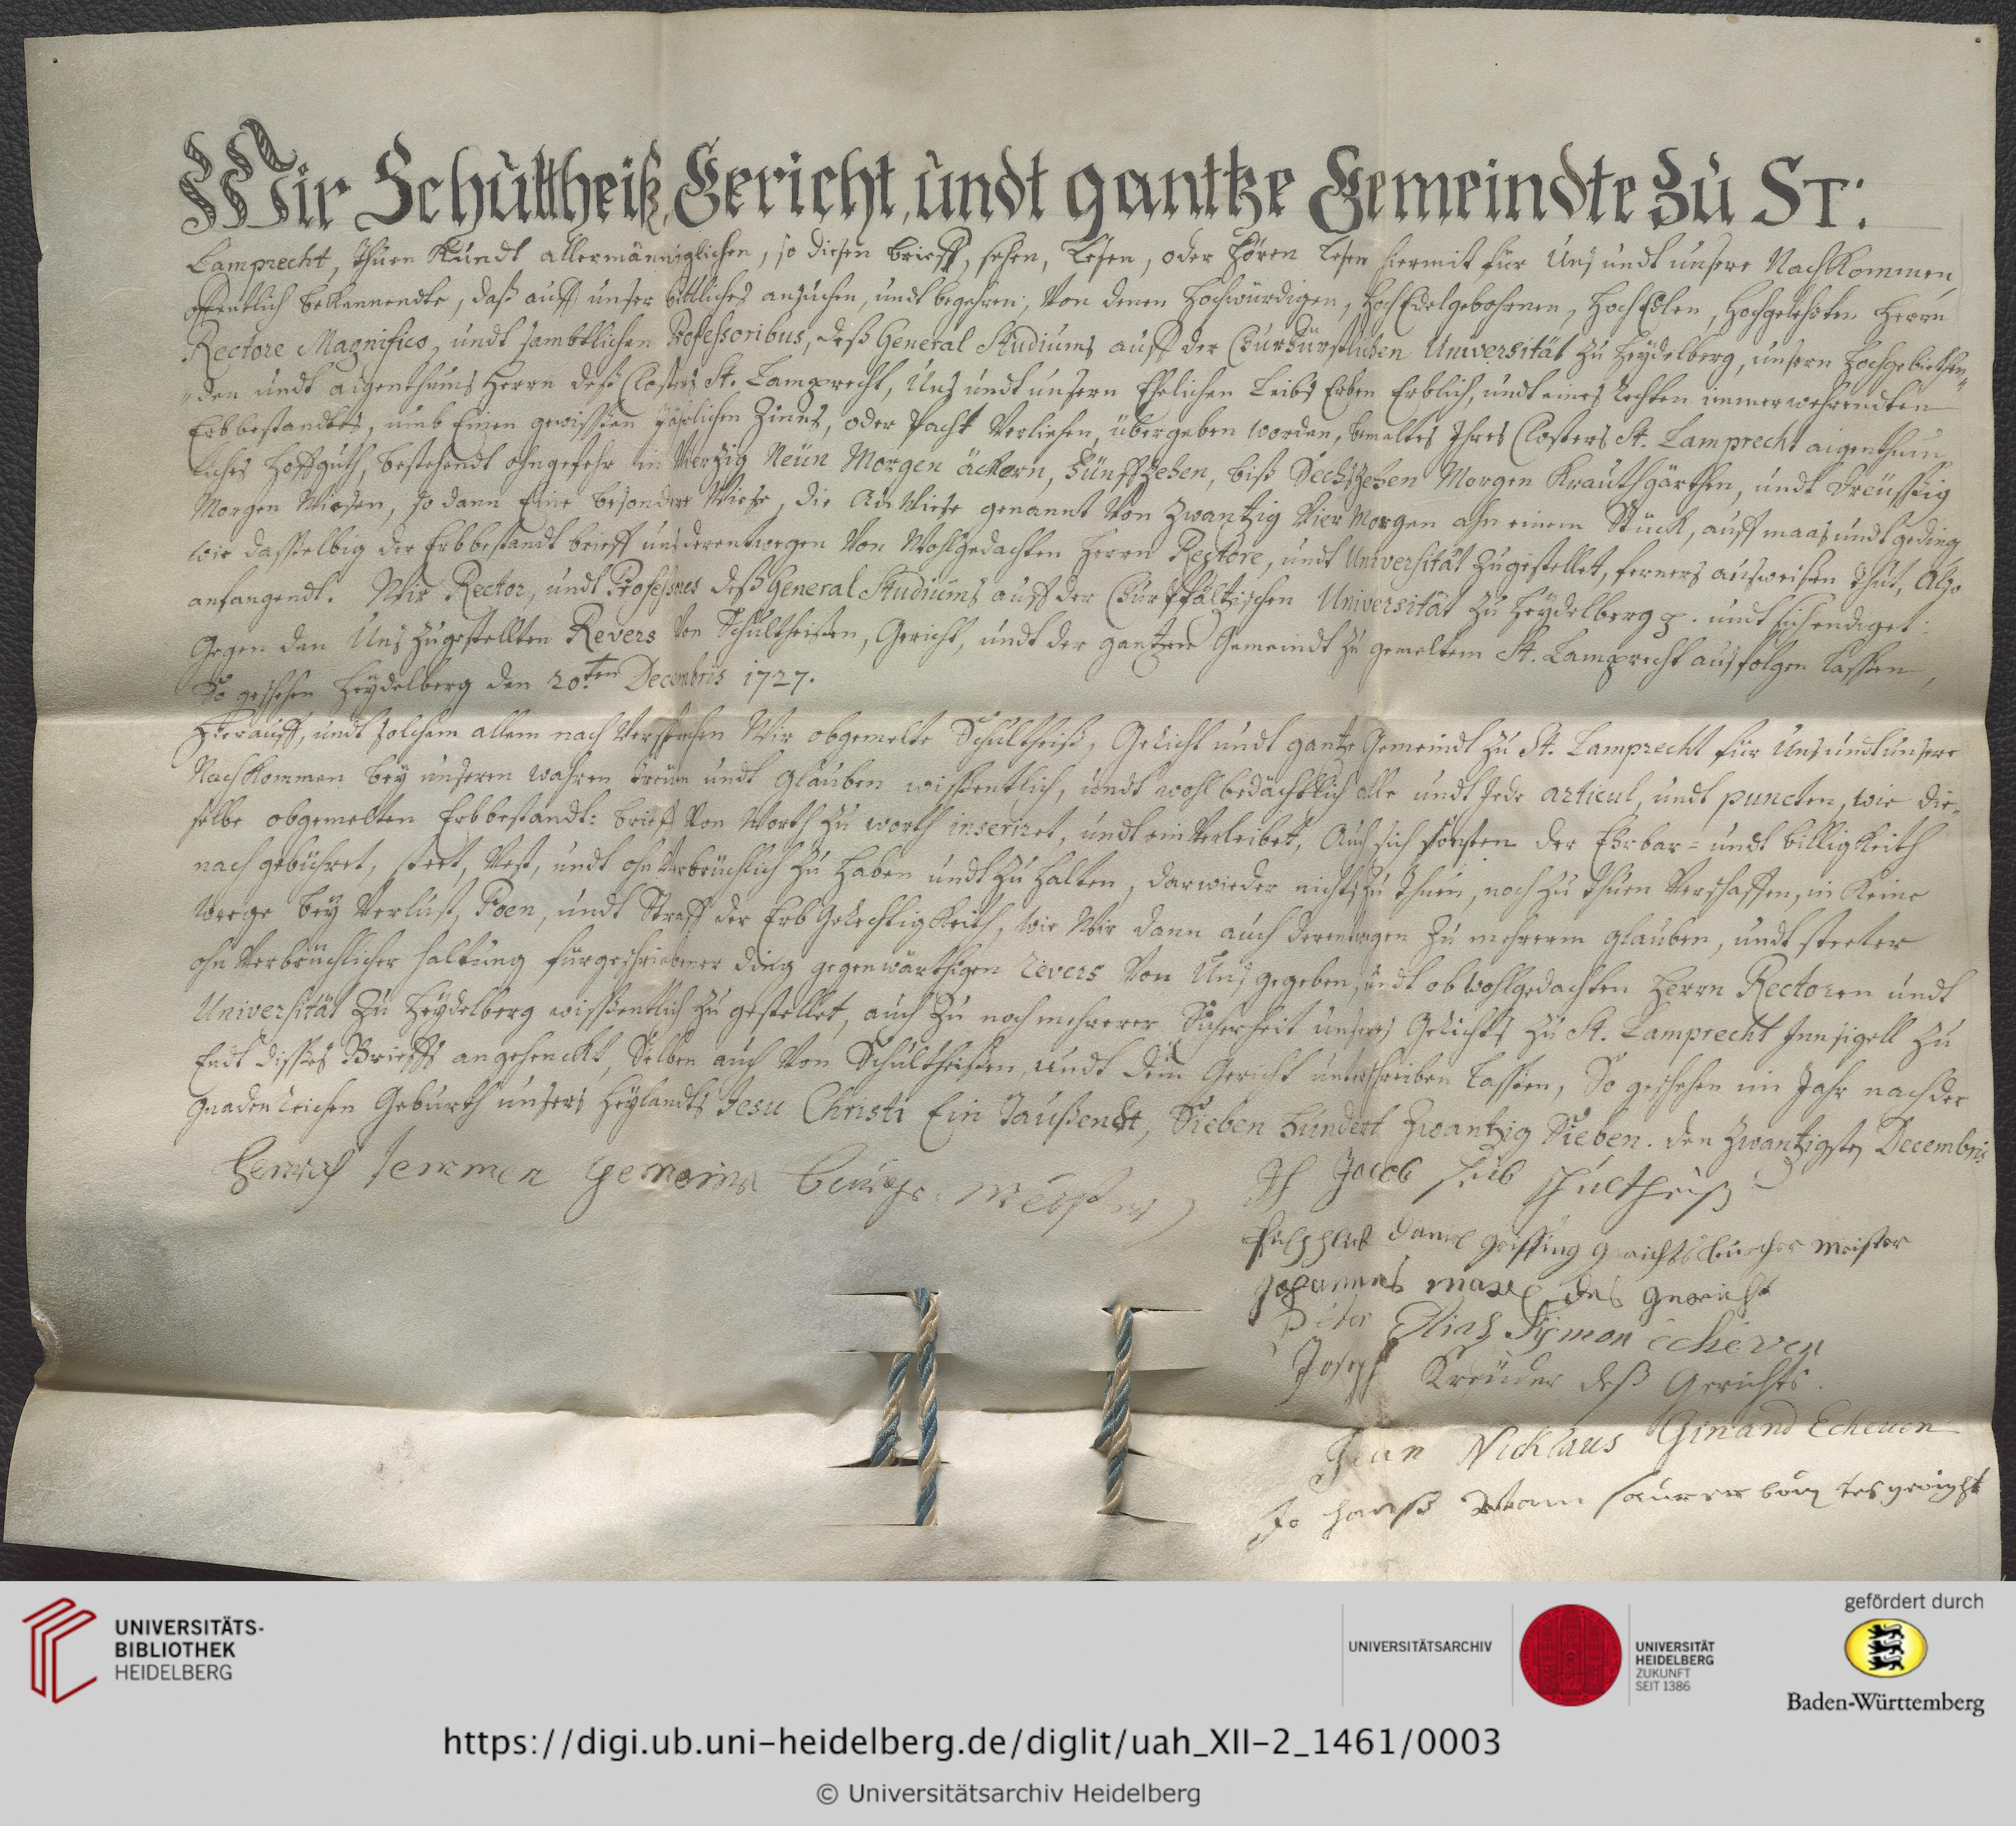 Wir Schultheiß, Gericht, undt gantze Gemeindte Zu ST:
Lamprecht, Thuen Kundt allermänniglichen, so diesen brieff, sehen, Lesen, oder hören lesen hiermit für Uns undt unsere NachKommen,
offentlich beKennendte, daß auff unser bittliches ansuchen, undt begehren, Von denen Hochwürdigen, HochEdelgebohrnen, HochEdlen, Hochgelehrten Herrn
Rectore Magnifico, undt sambtlichen Professoribus, deß General Studiums auff der Churfürstlichen Universität Zu Heydelberg, unsern Hochgebiethen„
„den undt aigenthums Herrn deß Closters St. Lamprecht, Uns undt unsern Ehelichen Leibs Erben Erblich, undt eines rechten immerwehrendten
Erbbestandts, umb Einen gewissen jährlichen Zinns, oder Pacht Verliehen, übergeben worden, bemeltes Ihres Closters St. Lamprecht aigenthum„
liches Hoffguth, bestehendt ohngefehr in Vierzig Neün Morgen äckern, Fünffzehen, biß Sechszehen Morgen Krauthgärthen, undt dreüssig
Morgen Wiesen, so dann Eine besondere Wiese, die AuWiese genannt Von Zwantzig Vier Morgen ahn einem Stück, auff maas undt geding
wie dasselbig der Erbbestandt brieff uns derentwegen Von Wohlgedachten Herrn Rectore, undt Universität Zugestellet, ferners ausweisen thut, Also
anfangendt. Wir Rector, undt Professores deß General Studiums auff der Churpfältzischen Universität Zu Heydelberg p. undt sich endiget:
Gegen den Uns Zugestellten Revers Von Schultheissen, Gericht, undt der gantzen Gemeindt Zu gemeltem St. Lamprecht ausfolgen lassen,
So geschehen Heydelberg den 20ten Decembris 1727.
Hierauff, undt solchem allem nach Versprechen Wir obgemelte Schultheiß, Gericht undt gantze Gemeindt Zu St. Lamprecht für Uns undt unsere
NachKommen bey unseren wahren treüen undt glauben wissentlich, undt wohlbedächtlich alle undt Jede articul, undt puncten, wie die=
selbe obgemelten Erbbestandt= brieff Von Worth Zu worth inseriret, undt einVerleibet, Auch sich sonsten der Ehrbar= undt billigKeith
nach gebühret, steet, Vest, undt ohnVerbrüchlich Zu haben undt Zu halten, darwieder nichts Zu thuen, noch Zu thuen Verschaffen, in Keine
weege bey Verlust, Poen, undt Straff der ErbGerechtigKeith, wie Wir dann auch derentwegen Zu mehrerem glauben, undt steeter
ohnVerbrüchlicher haltung fürgeschriebener ding gegenwärthigen revers Von Uns gegeben, undt obwohlgedachten Herrn Rectoren undt
Universität Zu Heydelberg wissentlich Zugestellet, auch Zu noch mehrerer Sicherheit unseres Gerichts Zu St. Lamprecht Innsigell Zu
Endt dises Brieffs angehenckt, Selben auch Von Schultheissen, undt dem Gericht unterschreiben lassen, So geschehen im Jahr nach der
gnadenreichen Geburth unsers Heylandts Jesu Christi Ein Taußendt, Sieben hundert Zwantzig Sieben. den Zwantzigsten Decembris
Henrich Jemmen gemeine
Jacob schultheiß
Daniel gerichts meister
Johannes des gericht
Peter Elias Symon echeven
Joseph Kreüder deß Gerichts.
Jean Nicklaus Ginand Echeuen
tes gericht
UNIVERSITÄTS-
BIBLIOTHEK
HEIDELBERG
UNIVERSITÄTSARCHIV
UNIVERSITÄT
HEIDELBERG
ZUKUNFT
SEIT 1386
gefördert durch
Baden-Württemberg
https://digi.ub.uni-heidelberg.de/diglit/uah_XII-2_1461/0003
© Universitätsarchiv Heidelberg